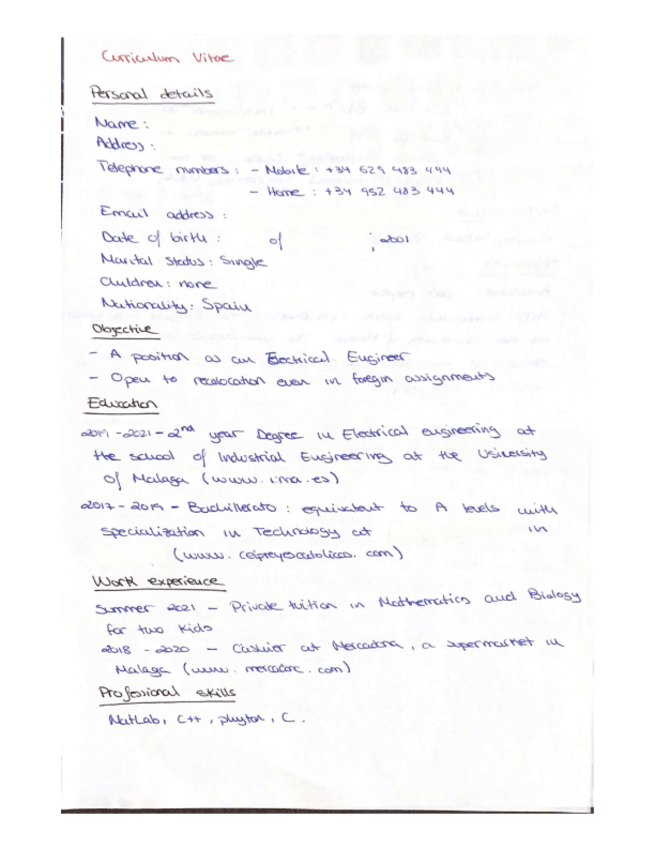 Curriculum Vitae
Personal details
Name :
Address :
Telephone numbers : - Mobile : +34 629 483 444
- Home : +34 952 483 444
Email address :
Date of birth : of ; 2001
Marital Status : Single
Children : none
Nationality : Spain
Objective
- A position as an Eectrical Engineer
- Open to recolocation even in foregin assignments
Education
2019 - 2021 - 2nd year Degree in Electrical engineering at
the school of Industrial Engineering at the University
of Malaga (www. uma. es)
2017 - 2019 - Bachillerato : equivalent to A levels with
specialization in Technology at in
(www. ceipreyescatolicos. com)
Work experience
Summer 2021 - Private tuition in Mathematics and Biology
for two kids
2018 - 2020 - Cashier at Mercadona, a supermarket in
Malaga (www. com)
Professional skills
MatLab, C++, phyton, C.